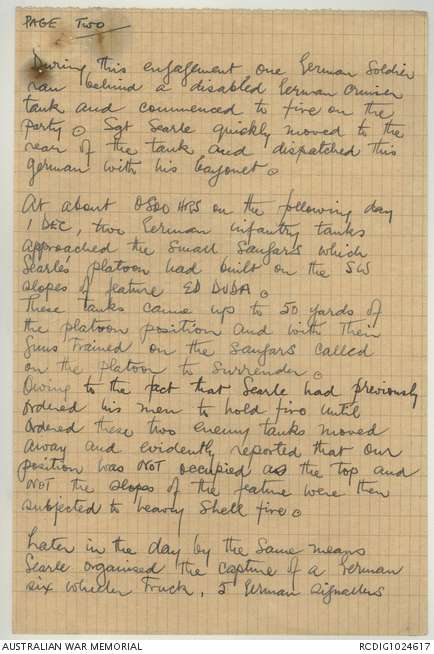 PAGE TWO
During this engagement one German Soldier
ran behind a disabled German cruiser
tank and commenced to fire on the
party. Sgt Searle quickly moved to the
rear of the tank and dispatched this
german with his bayonet.
At about 0500 HRS on the following day
1 DEC, two German infantry tanks
approached the small Sangars which
Searle's platoon had built on the SW
slopes of feature ED DUDA.
These tanks came up to 50 yards of
the platoon position and with their
Guns trained on the sangars called
on the platoon to surrender.
Owing to the fact that Searle had previously
ordered his men to hold fire until
ordered these two enemy tanks moved
away and evidently reported that our
position was NOT occupied as the top and
NOT the slopes of the feature were then
subjected to heavy shell fire.
Later in the day by the same means
Searle organised the capture of a German
six wheeler truck, 5 German signallers
AUSTRALIAN WAR MEMORIAL
RCDIG1024617